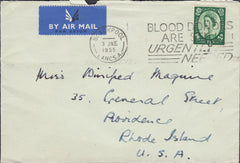 BY AIR MAIL
BLACKPOOL
3 JNE
1955
LANCS.
BLOOD
ARE
URGENTLY
NEEDED
Miss Winifred Maguire
35, General Street,
Providence
Rhode Island
U. S. A.